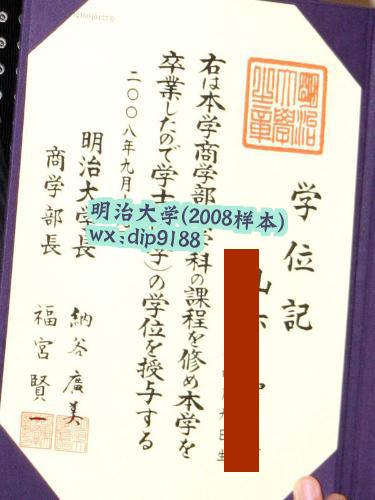 明治大學之章
学位記
日生
右は本学商学部 学科の課程を修め本学を
卒業したので学士 学)の学位を授与する
二〇〇八年九月
明治大学長 納谷廣美
商学部長 福宮賢一
明治大学(2008样本)
wx:dip9188